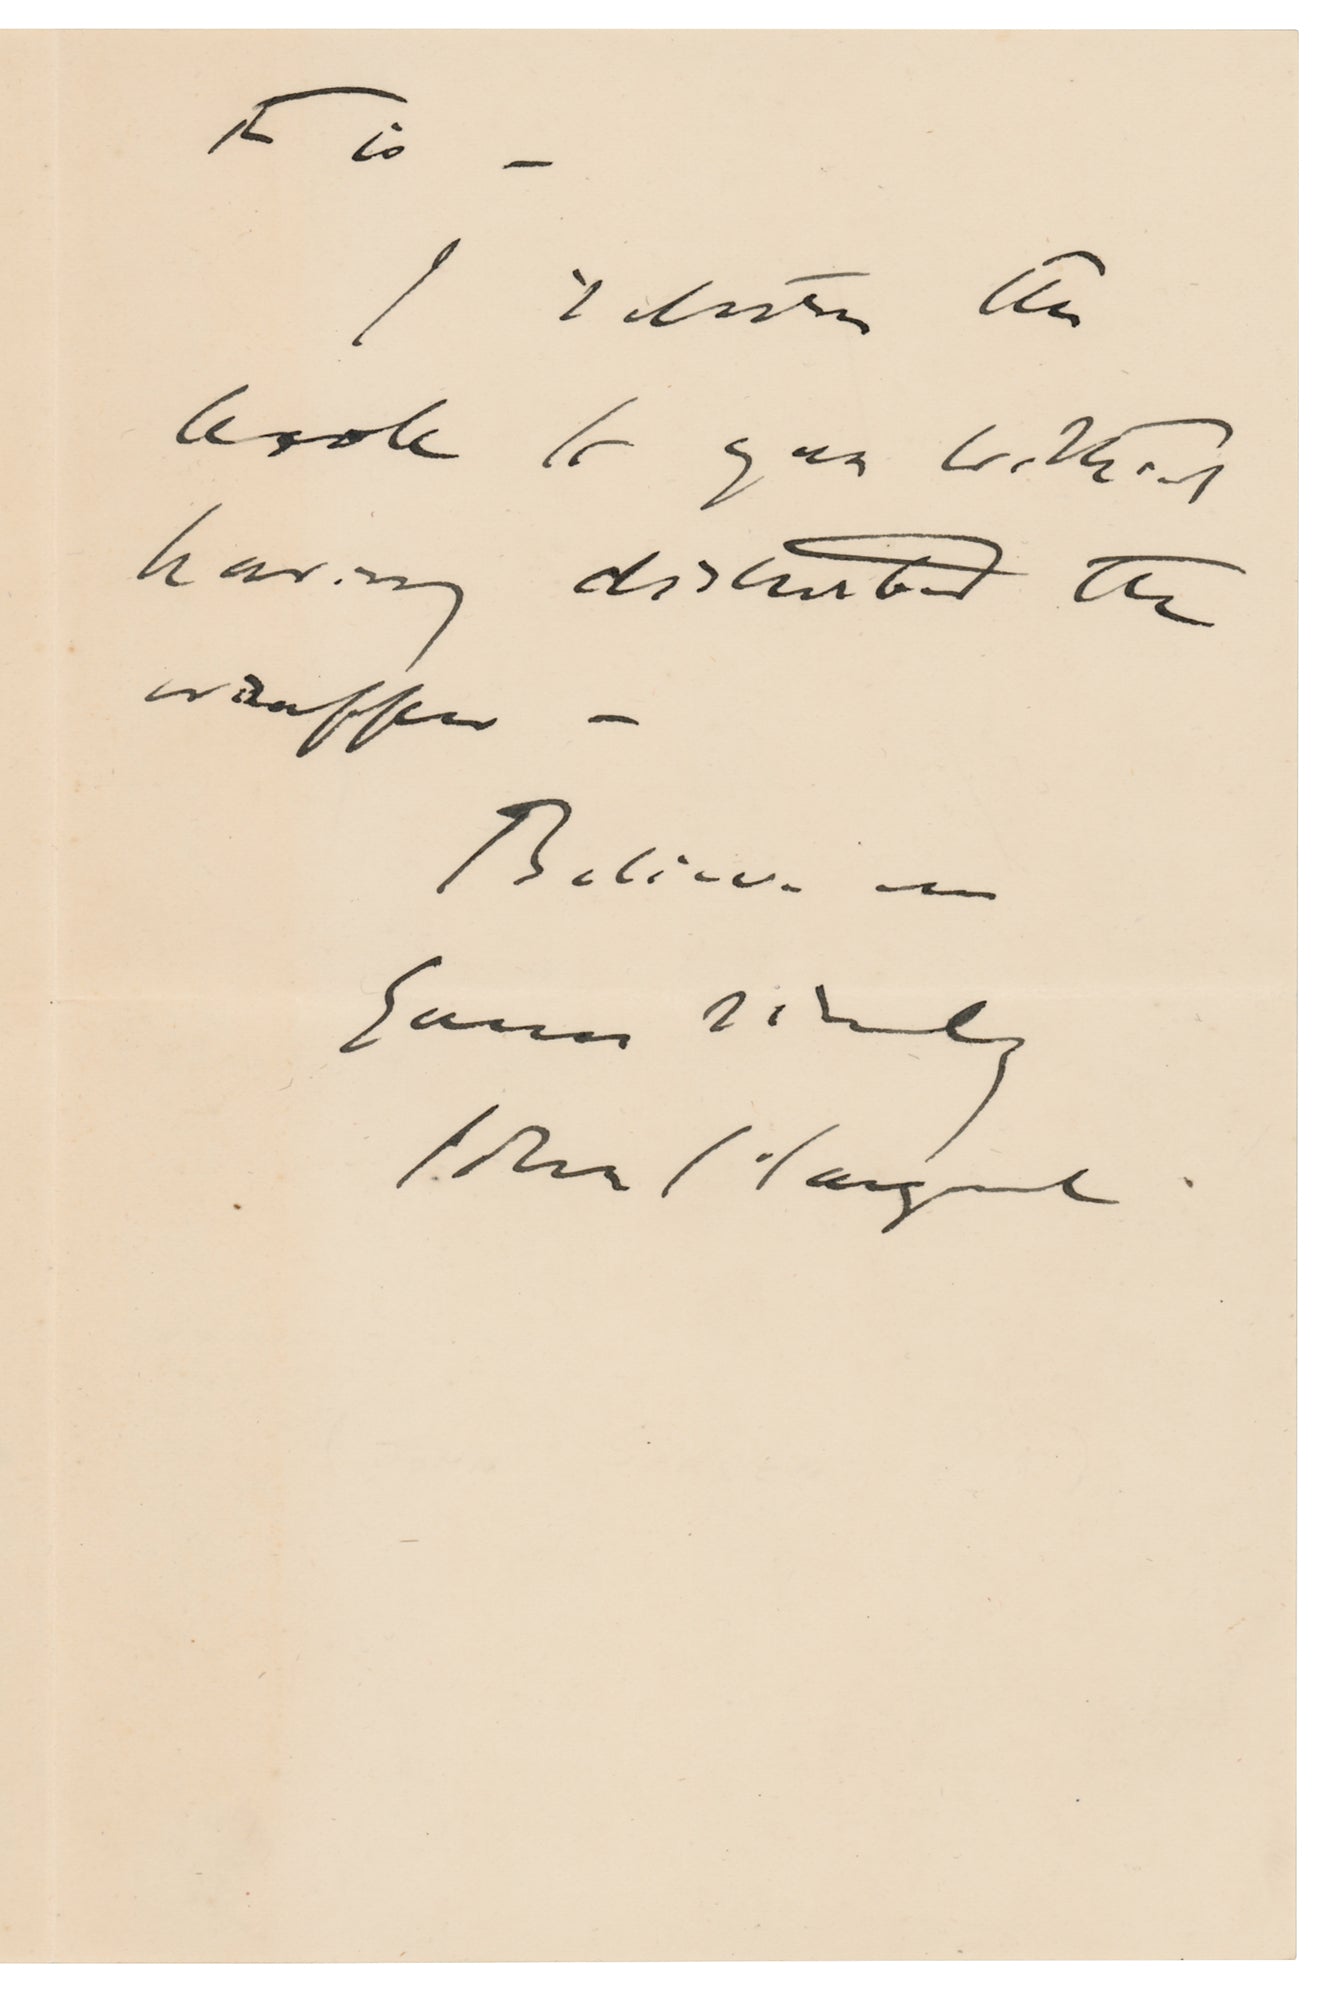 is —
I return the
book to you without
having disturbed the
wrapper —
Believe me
Yours sincerely
John S. Sargent